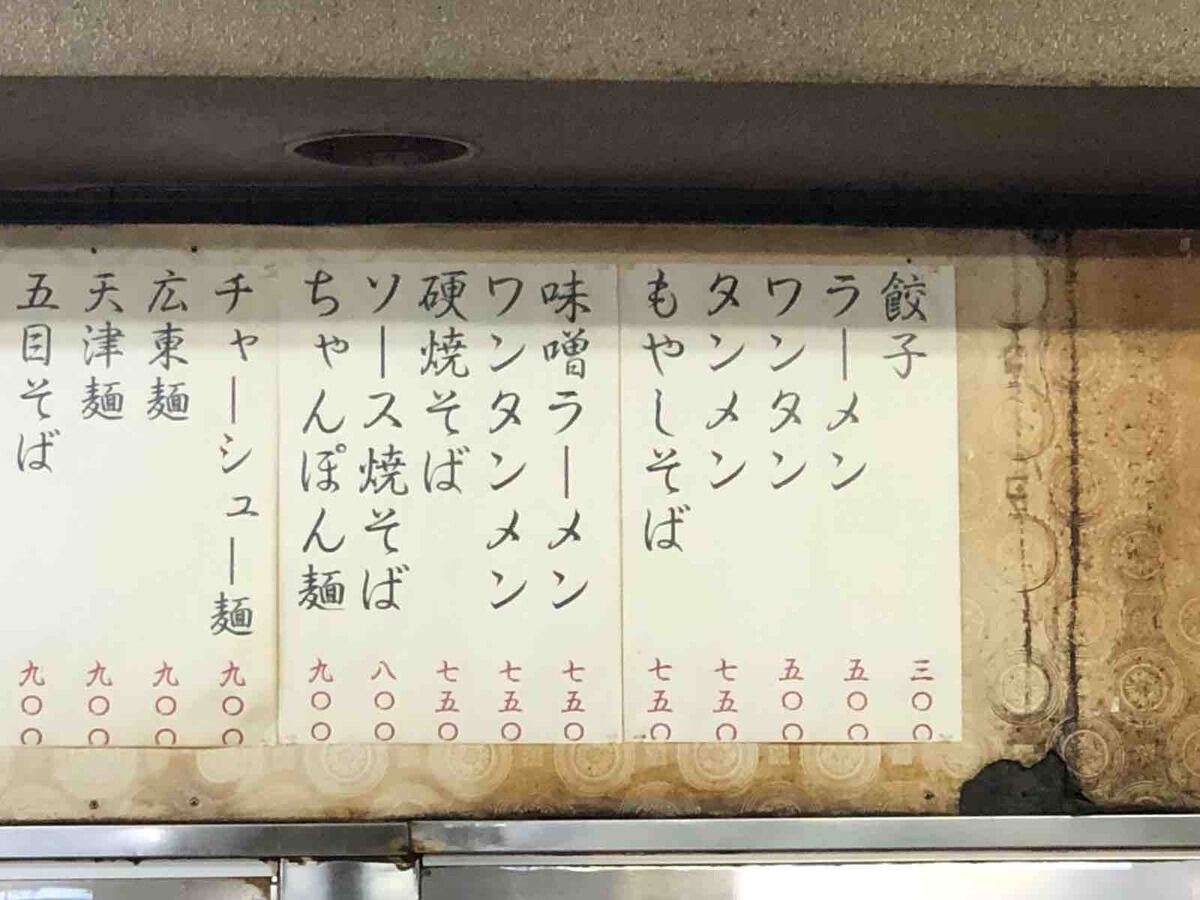 餃子 三〇〇
ラーメン 五〇〇
ワンタン 五〇〇
タンメン 七五〇
もやしそば 七五〇
味噌ラーメン 七五〇
ワンタンメン 七五〇
硬焼そば 七五〇
ソース焼そば 八〇〇
ちゃんぽん麺 九〇〇
チャーシュー麺 九〇〇
広東麺 九〇〇
天津麺 九〇〇
五目そば 九〇〇